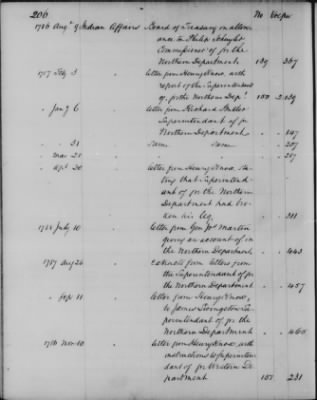 206
No Vol pa
1786 Aug. 9 Indian Affairs Board of Treasury on allow
ance to Philip Schuyler
Commissioner of for the
Northern Department 139 367
1787 Feby 3 " letter from Henry Knox, with
report of the Superintendent
of, for the Northern Dept. 150 2.139
" Jany 6 " letter from Richard Butler
Superintendent of for
Northern Department " " 147
" " 31 " Same Same " " 207
" Mar 28 " " " " 257
" Sept 20 " letter from Henry Knox sta
ting that Superintend
ent of for the Northern
Department had bro
ken his leg. " " 311
1788 July 10 " letter from Genl Jos Martin
giving an account of in
the Northern Department " " 443
1787 Aug 26 " Extracts from letters from
the Superintendent of for
the Northern Department " " 457
" Sep. 11 " letter from Henry Knox,
to James Livingston Su
perintendent of for the
Northern Department " " 465
1786 Nov. 10 " letter from Henry Knox, with
instructions to Superinten
dent of for Western De
partment 150 231